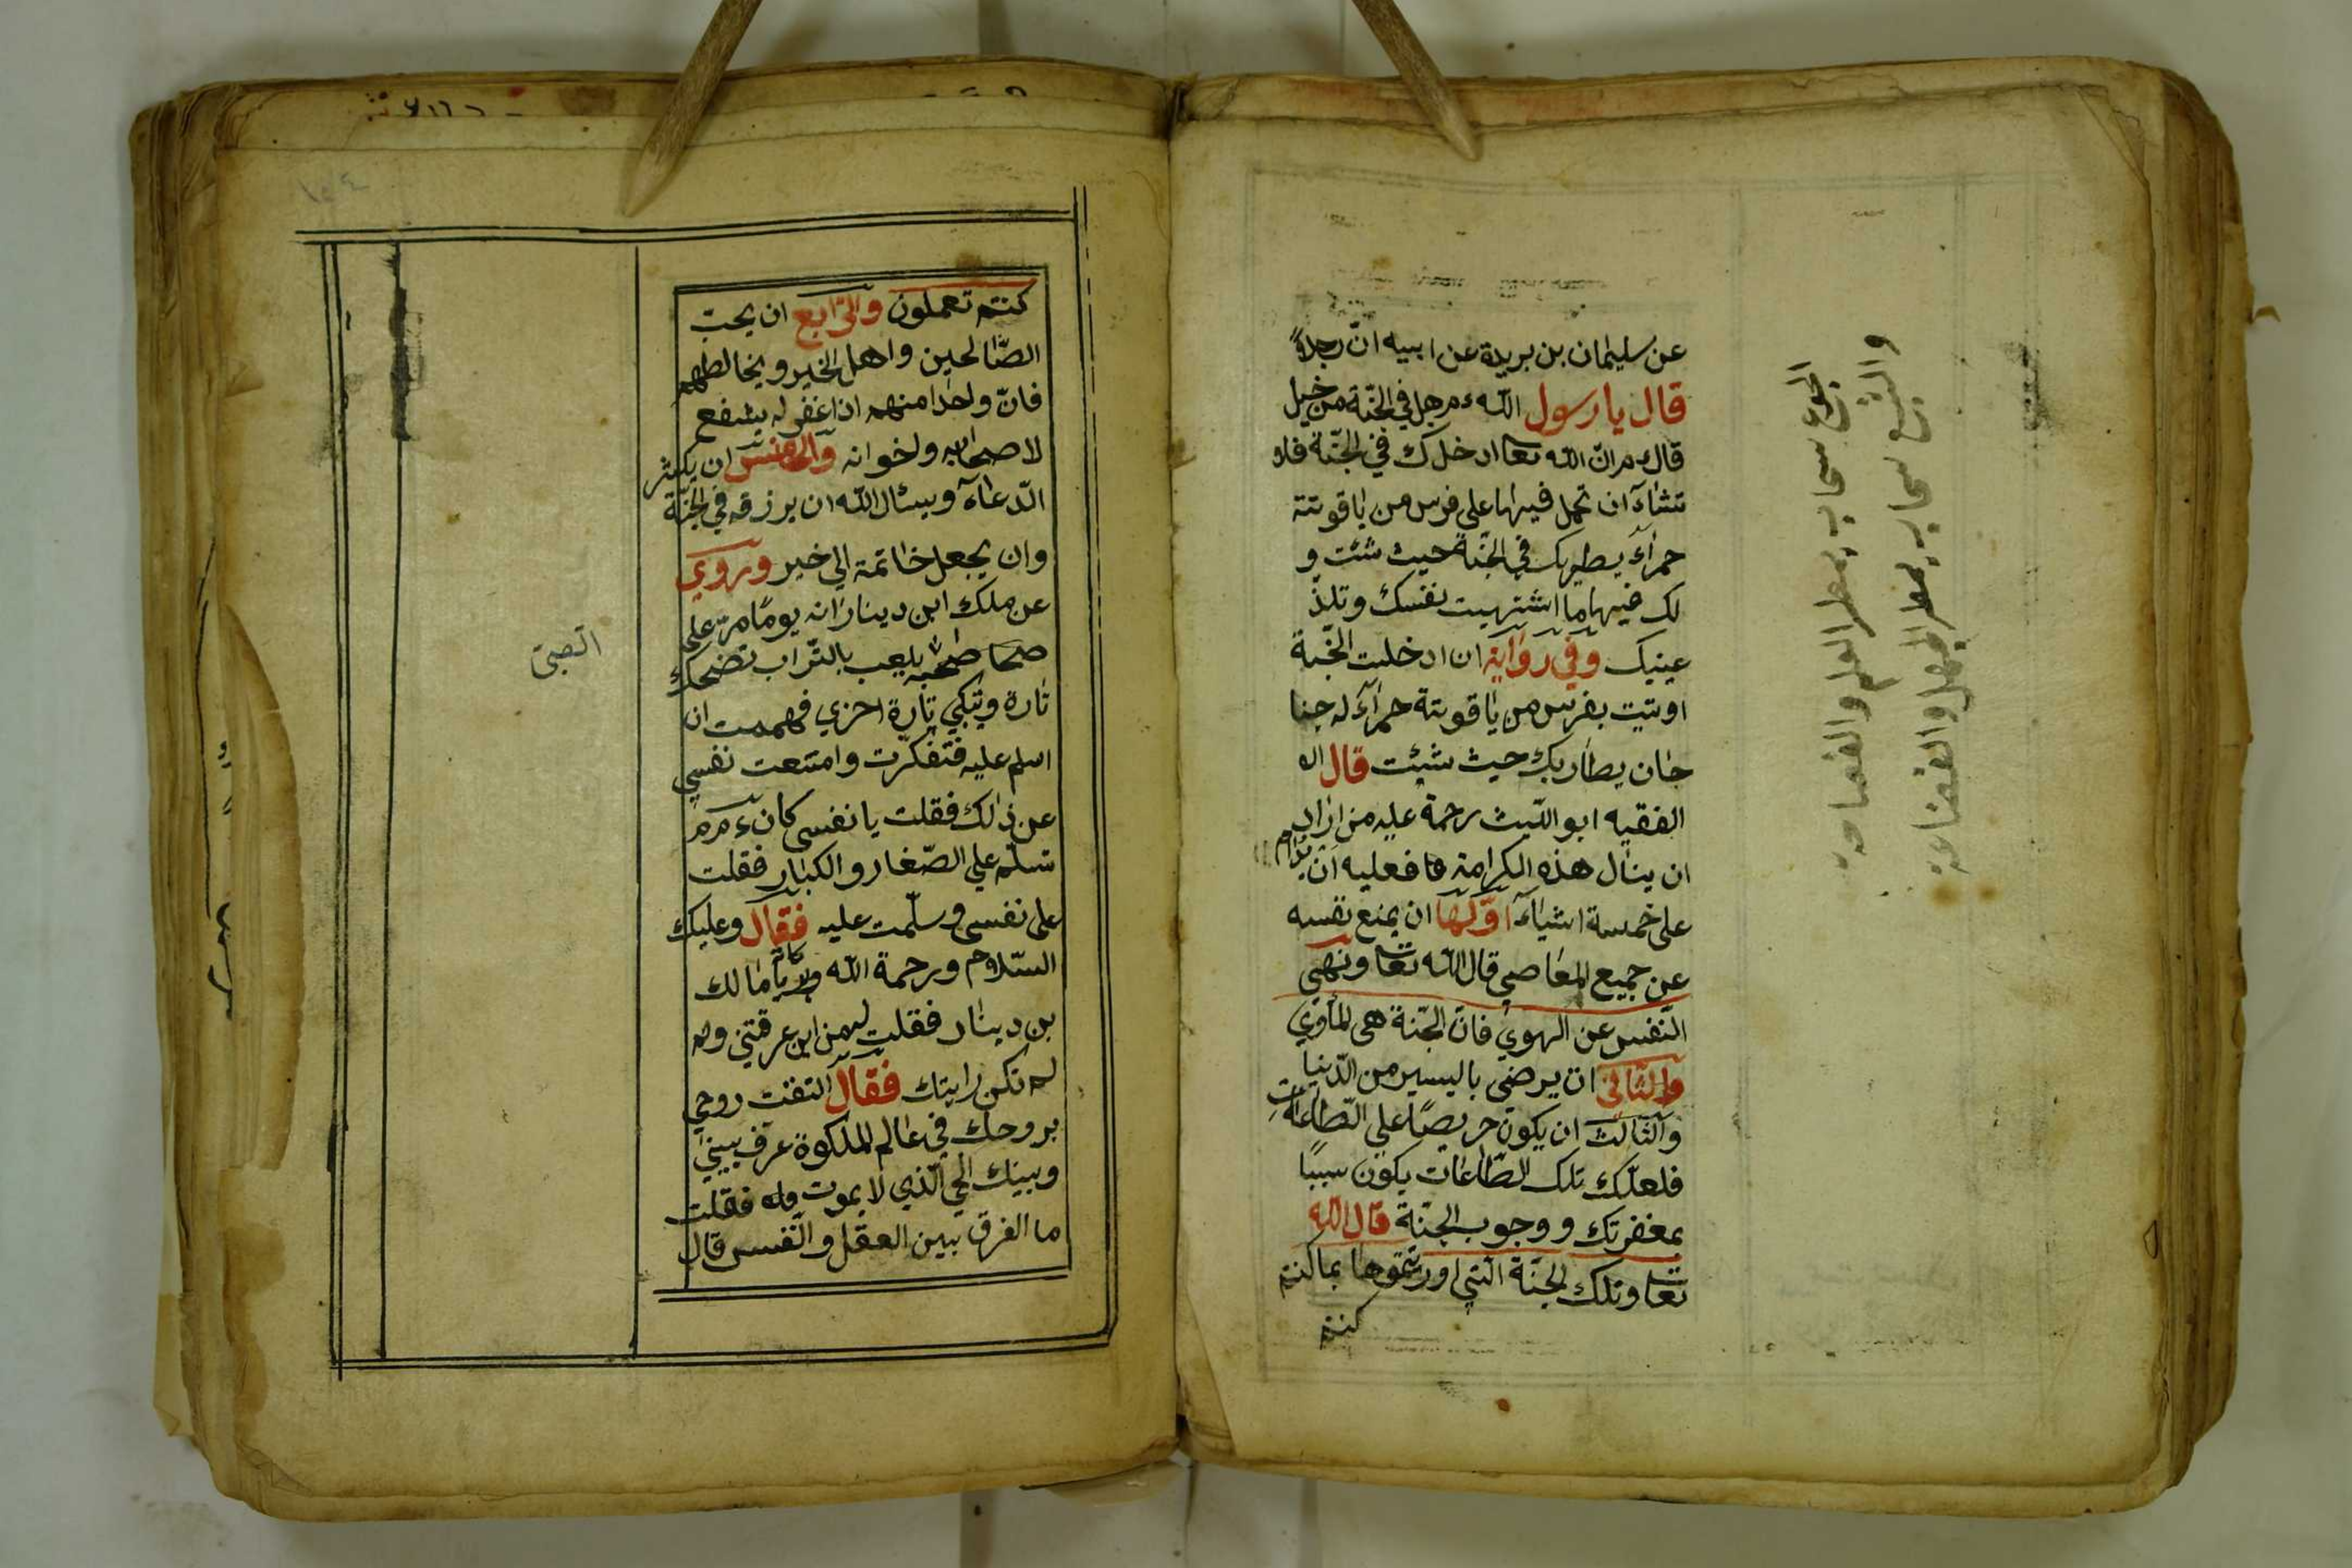 عن سليمان بن بريدة عن ابيه ان رجلاً
قال يا رسول الله ءم هل في الجنّة من خيل
قال ءم انّ الله تعا ادخلك في الجنّة فلا
تشاء ان تحمل فيها على فرس من ياقوتة
حمرآء يطير بك في الجنّة حيث شئت و
لك فيها ما اشتهيت نفسك و تلذّ
عينيك وفي رواية ان ادخلت الجنّة
اوتيت بفرس من ياقوتة حمرآء له جنا
جان يطار بك حيث شئت قال
الفقيه ابو اللّيث رحمة عليه من اراد
ان ينال هذه الكرامة فعليه ان يداوم
على خمسة اشياء اوّلها ان يمنع نفسه
عن جميع المعاصي قال الله تعا ونهي
النّفس عن الهوي فانّ الجنّة هي المأوي
والثّاني ان يرضى باليسير من الدّنيا
والثّالث ان يكون حريصًا علي الطّاعات
فلعلّك تلك الطّاعات يكون سببًا
بمغفرتك و وجوب الجنّة قال الله
تعا وتلك الجنّة الّتي اورثتموها بما كنتم
كنتم
الجوع سحاب يمطر العلم والفصاحة
والشبع سحاب يمطر الجهل و
كنتم تعملون والرّابع ان يحبّ
الصّالحين واهل الخير ويخالطهم
فانّ واحدا منهم اذا غفر له يشفع
لاصحابه ولخوانه والخامس ان يكثر
الدّعاء ويسئال الله ان يرزقه في الجنّة
وان يجعل خاتمة الي خير وروي
عن ملك ابن دينار انه يومًا مرّ على
يلعب بالتّراب تضحك
تارة وتبكي تارة اخري فهممت ان
اسلم عليه فتفكّرت وامتنعت نفسي
عن ذلك فقلت يا نفسي كان ءم
تسلّم علي الصّغار و الكبار فقلت
على نفسي و سلّمت عليه فقال وعليك
السّلام ورحمة الله يا مالك
بن دينار فقلت من اين عرفتني و
لم تكن رايتك فقال التفت روحي
بروحك في عالم الملكوة عرف بيني
وبينك الحي الّذي لا يموت فقلت
ما الفرق بين العقل والنّفس قال
الصبي